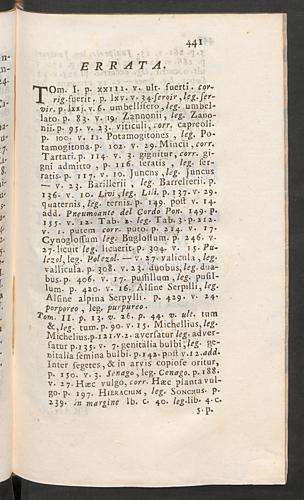 441
ERRATA.
TOm. I. p. XXIII. v. ult. fuerti. cor-
rig. fuerit, p. lxv. v. 34. feroir, leg. fer-
vir. p. lxxj. v. 6. umbellifero, leg. umbel-
lato. p. 83. v. 19. Zannonii, leg. Zano-
nii. p. 95. v. 23. viticuli, corr. capreoli.
p. 100. v. 11. Potamogitones, leg. Po-
tamogitona. p. 102. v. 29. Mincii, corr.
Tartari. p. 114. v. 3. gignitur, corr. gi-
gni admitto, p. 116. teratis, leg. ser-
ratis. p. 117. v. 10. Juncns, leg. Juncus
— v. 23. Barillerii, leg. Barrelierii. p.
136. v. 10. Livi, leg. Lili. p. 137. v. 29.
quaternis, leg. ternis. p. 149. post v. 14.
add. Pneumoante del Cordo Pon. 149. p.
155. v. 12. Tab. 2. leg. Tab. 3. p. 212.
v. 1. putem corr. puto. p. 214. v. 17.
Cynoglossum leg. Buglossum. p. 246. v.
27. licuit leg. licuerit. p. 304. v. 15. Pu-
lezol, leg. Polezol. — v. 27. valicula, leg.
vallicula. p. 308. v. 23. duobus, leg. dua-
bus. p. 406. v. 17. pussillum, leg. pusil-
lum. p. 420. v. 16. Alsine Serpilli, leg.
Alsine alpina Serpylli. p. 429. v. 24.
porporeo, leg. purpureo.
Tom. II. p. 13. v. 26. p. 44. v. ult. tum
&, leg. tum. p. 90. v. 15. Michellius, leg.
Michelius. p. 121. v. 2. aversatur leg. adver-
satur p. 135. v. 7. genitalia bulbi, leg. ge-
nitalia semina bulbi. p. 142. post v. 12. add.
Inter segetes, & in arvis copiose oritur,
p. 150. v. 3. Senago, leg. Cenago. p. 188.
v. 27. Hæc vulgo, corr. Hæc planta vul-
go. p. 197. HIERACIUM, leg. SONCHUS. p.
239. in margine lb. c. 40. leg. lib. 4. c.
5. p.